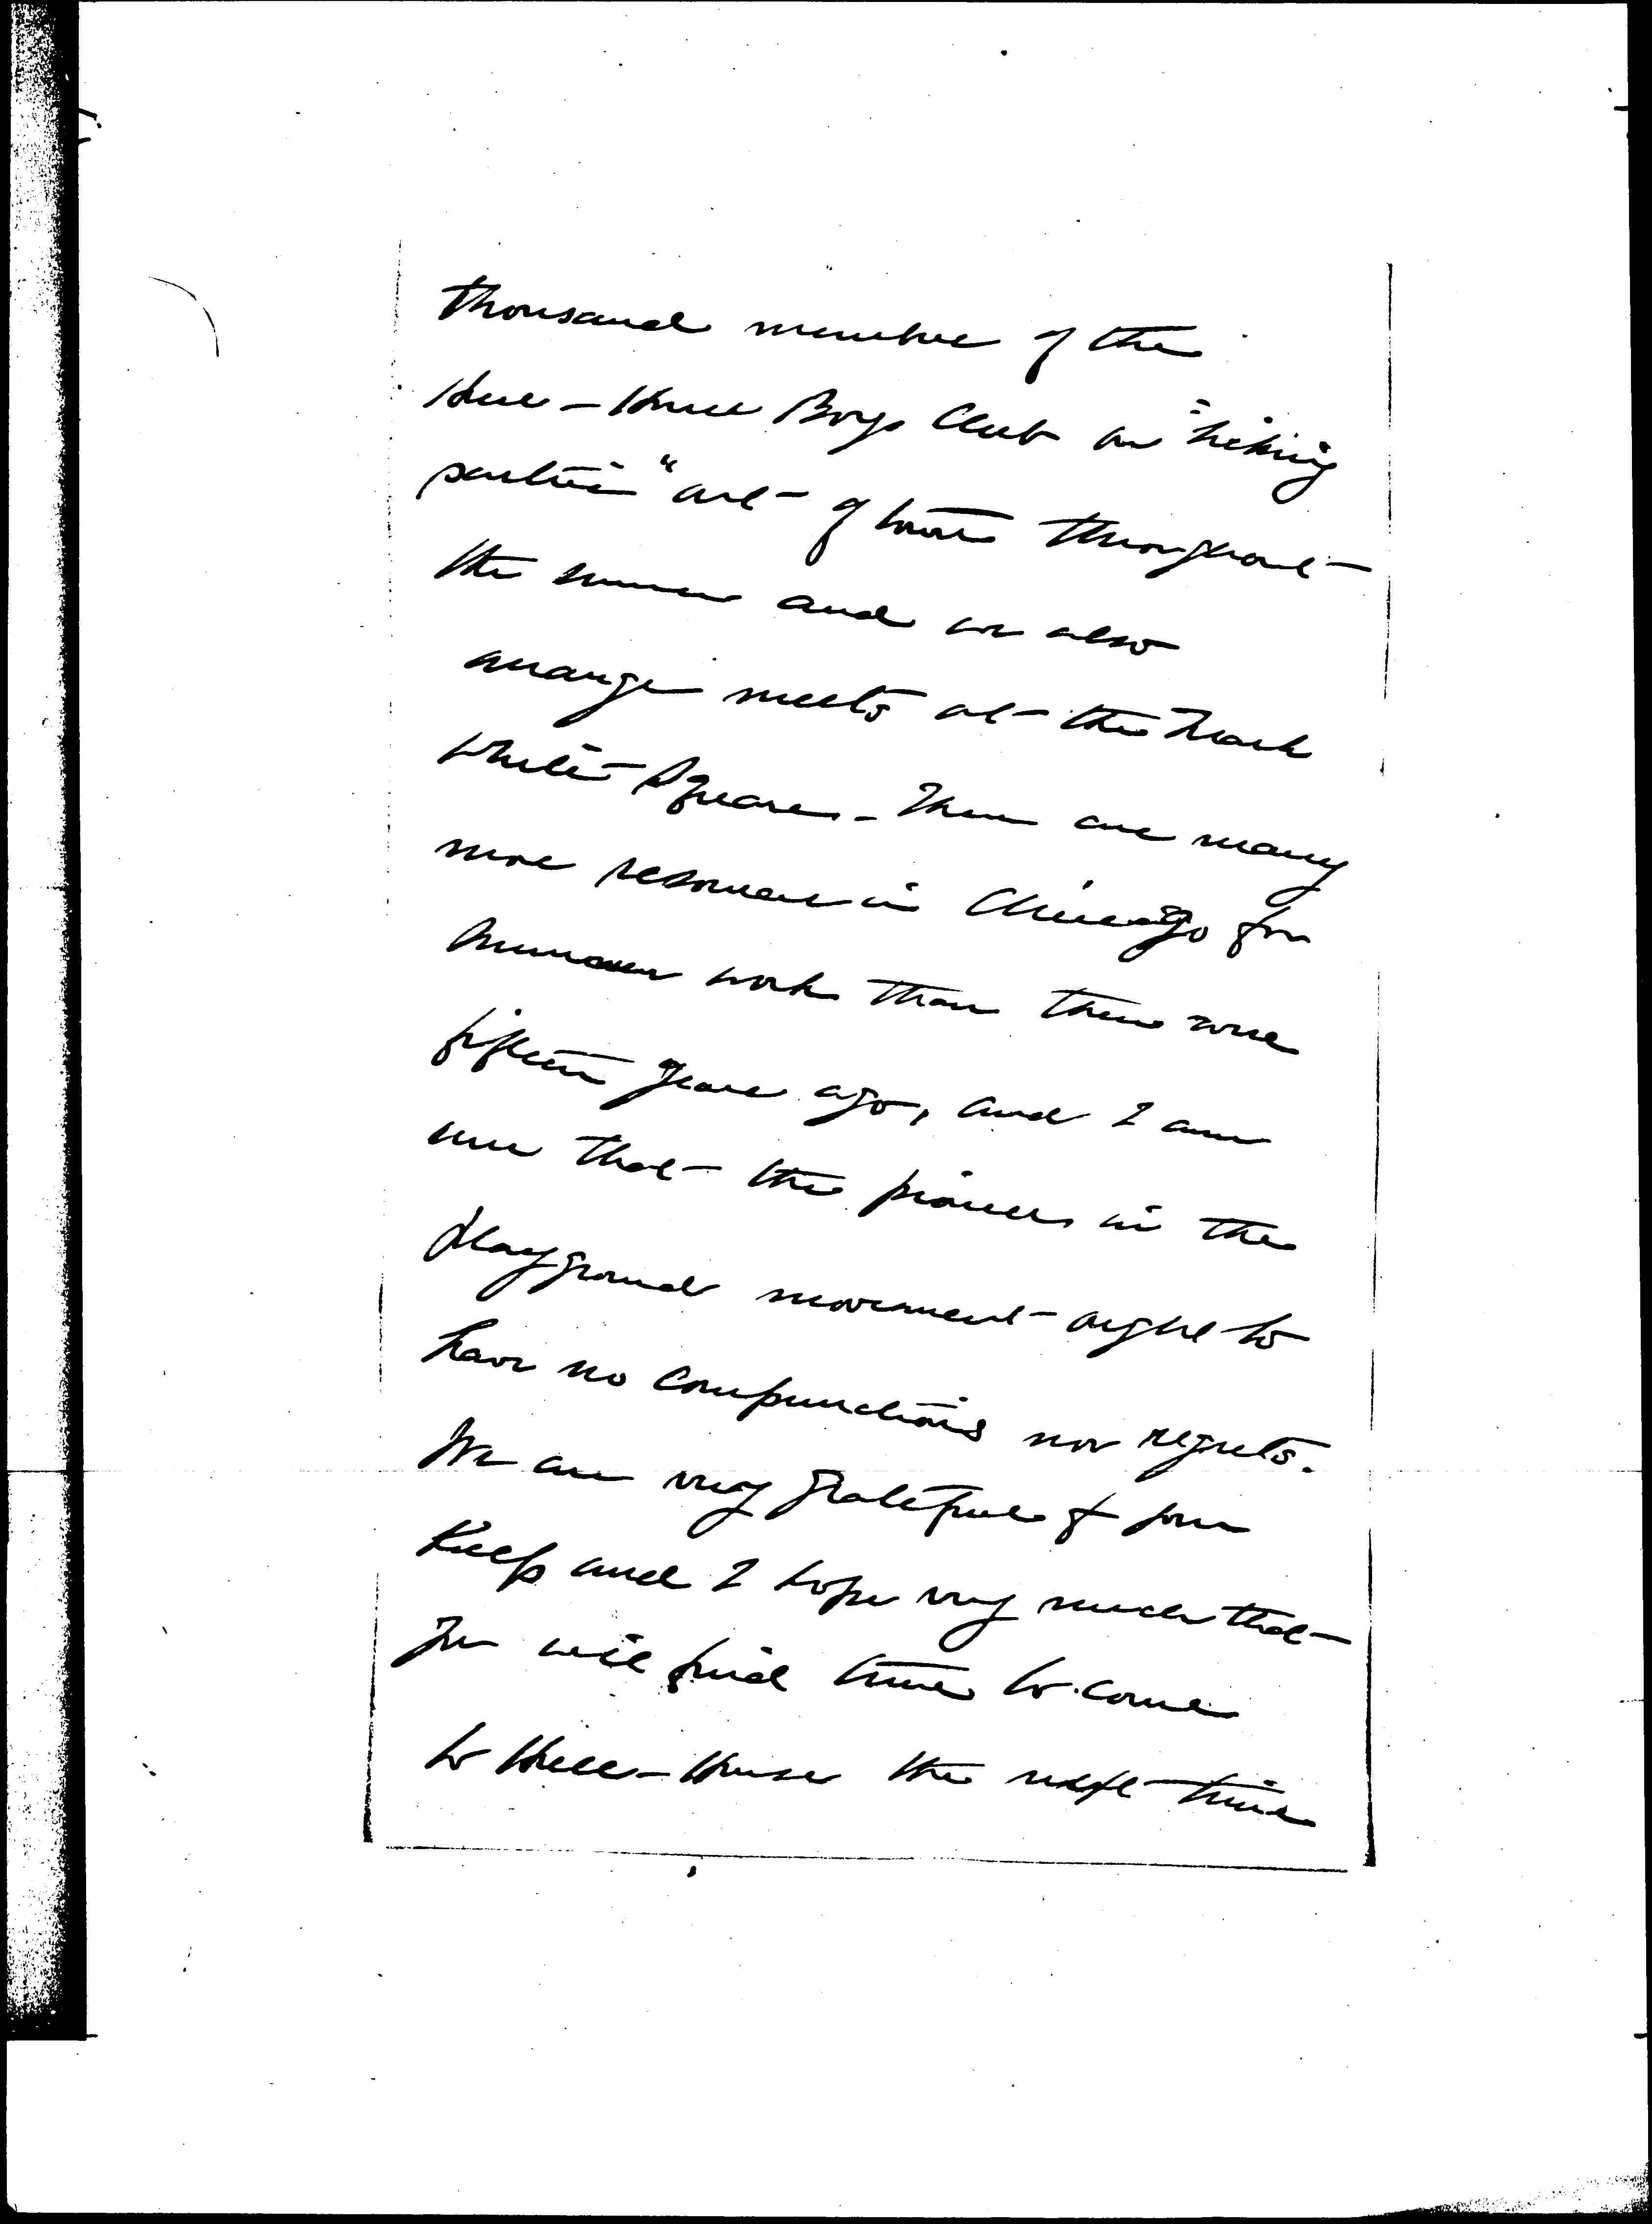 thousand members of the
Hull-House Boys Club on "hiking
parties" out of town throughout
the summer and we also
arrange meets at the
White Square - There are many
more resources in Chicago for
summer work than there were
fifteen years ago, and I am
sure that the pioneers in the
playground movement ought to
have no compunctions nor regrets.
We are very grateful for your
help and I hope very much that
you will find time to come
to Hull-House the next time